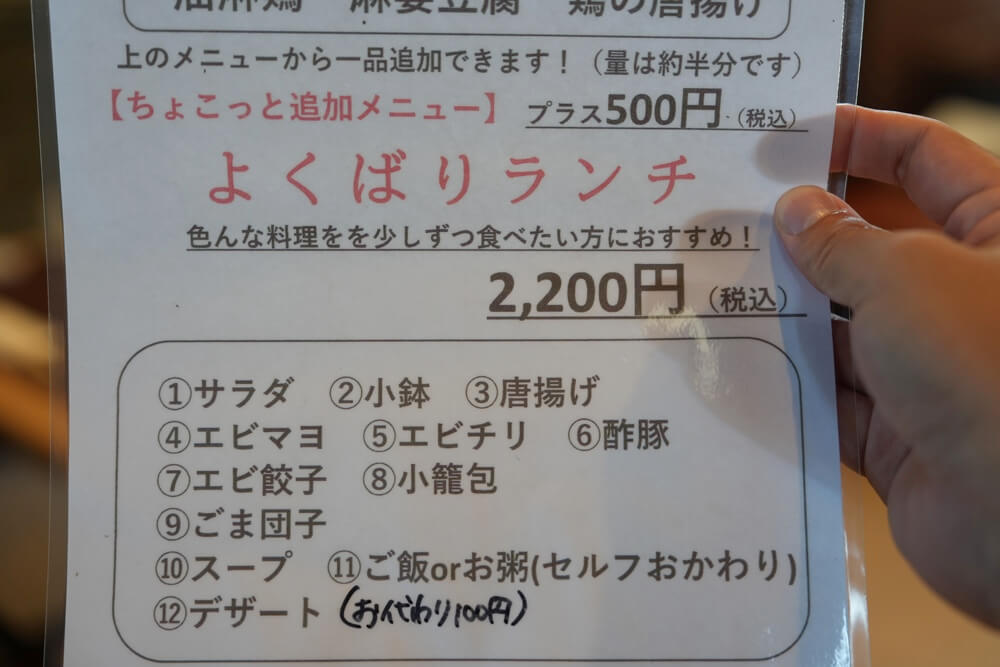 油淋鶏 麻婆豆腐 鶏の唐揚げ
上のメニューから一品追加できます！（量は約半分です）
【ちょこっと追加メニュー】 プラス500円（税込）
よくばりランチ
色んな料理をを少しずつ食べたい方におすすめ！
2,200円（税込）
①サラダ ②小鉢 ③唐揚げ
④エビマヨ ⑤エビチリ ⑥酢豚
⑦エビ餃子 ⑧小籠包
⑨ごま団子
⑩スープ ⑪ご飯orお粥(セルフおかわり)
⑫デザート (お代わり100円)